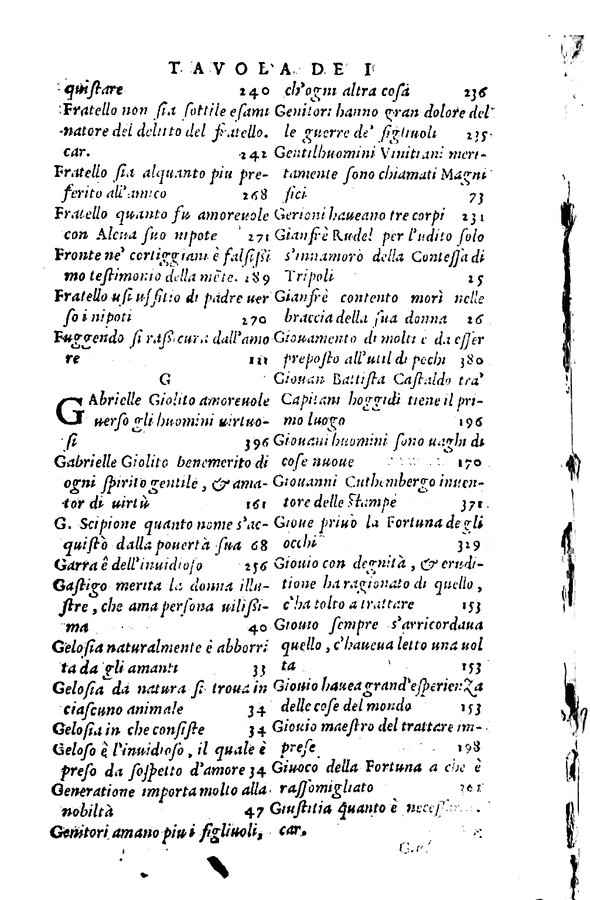 TAVOLA DE I
quistare 240
Fratello non sia sottile esami
natore del delitto del fratello.
car. 242
Fratello sia alquanto piu pre-
ferito all'amico 268
Fratello quanto fu amoreuole
con Alcua suo nipote 271
Fronte ne' cortiggiani è falsissi
mo testimonio della mẽte. 189
Fratello usi uffitio di padre uer
so i nipoti 270
Fuggendo si rassicura dall'amo
re 111
G
GAbrielle Giolito amoreuole
uerso gli huomini uirtuo-
si 396
Gabrielle Giolito benemerito di
ogni spirito gentile, & ama-
tor di uirtù 161
G. Scipione quanto nome s'ac-
quistò dalla pouertà sua 68
Garra è dell'inuidioso 256
Gastigo merita la donna illu-
stre, che ama persona uilissi-
ma 40
Gelosia naturalmente è abborri
ta da gli amanti 33
Gelosia da natura si troua in
ciascuno animale 34
Gelosia in che consiste 34
Geloso è l'inuidioso, il quale è
preso da sospetto d'amore 34
Generatione importa molto alla
nobiltà 47
Genitori amano piu i figliuoli,
ch'ogni altra cosa 236
Genitori hanno gran dolore del
le guerre de' figliuoli 235
Gentilhuomini Vinitiani meri-
tamente sono chiamati Magni
fici 73
Gerioni haueano tre corpi 231
Gianfrè Rudel per l'udito solo
s'innamorò della Contessa di
Tripoli 25
Gianfrè contento morì nelle
braccia della sua donna 26
Giouamento di molti è da esser
preposto all'util di pochi 380
Giouan Battista Castaldo tra'
Capitani hoggidì tiene il pri-
mo luogo 196
Giouani huomini sono uaghi di
cose nuoue 170
Giouanni Cuthembergo inuen-
tore delle stampe 371
Gioue priuò la Fortuna de gli
occhi 329
Giouio con degnità, & erudi-
tione ha ragionato di quello,
c'ha tolto a trattare 153
Giouio sempre s'arricordaua
quello, c'haueua letto una uol
ta 153
Giouio hauea grand'esperienza
delle cose del mondo 153
Giouio maestro del trattare im-
prese 198
Giuoco della Fortuna a che è
rassomigliato
Giustitia quanto è
car.